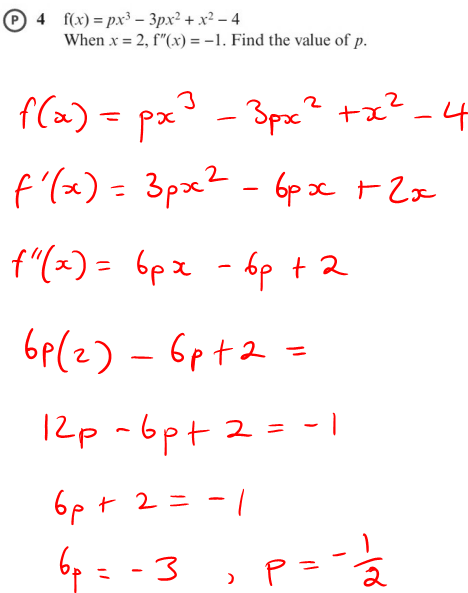 P 4 f(x) = px³ – 3px² + x² – 4
When x = 2, f″(x) = –1. Find the value of p.
f(x) = px³ - 3px² + x² - 4
f'(x) = 3px² - 6px + 2x
f"(x) = 6px - 6p + 2
6p(2) - 6p + 2 =
12p - 6p + 2 = -1
6p + 2 = -1
6p = -3 , p = -1/2